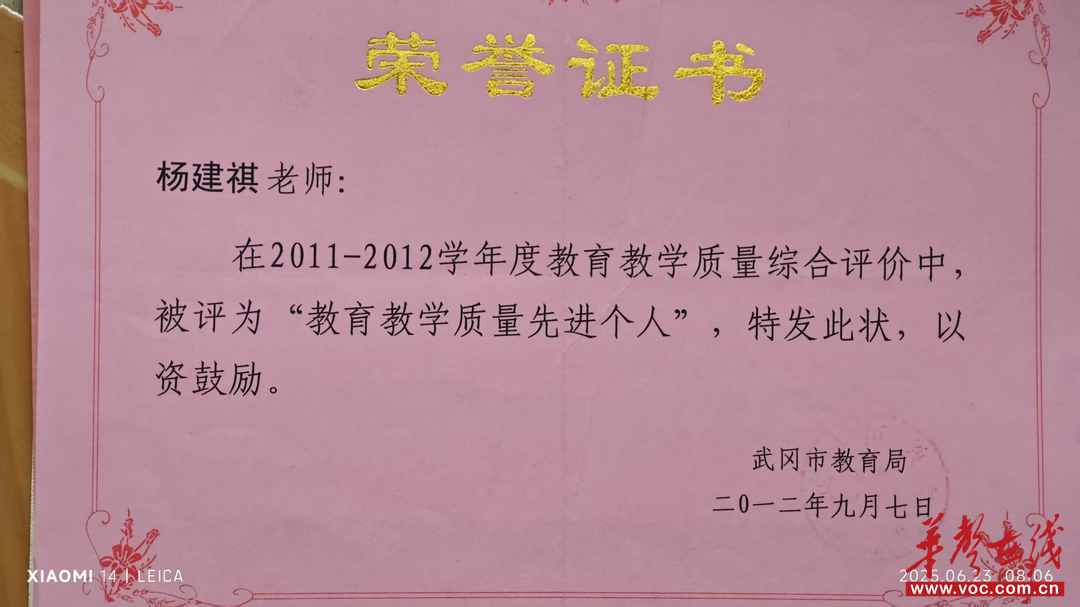 荣誉证书
杨建祺老师：
在2011-2012学年度教育教学质量综合评价中，
被评为“教育教学质量先进个人”，特发此状，以
资鼓励。
武冈市教育局
二0一二年九月七日
XIAOMI 14 | LEICA
2025.06.23 08:06
华声在线
www.voc.com.cn